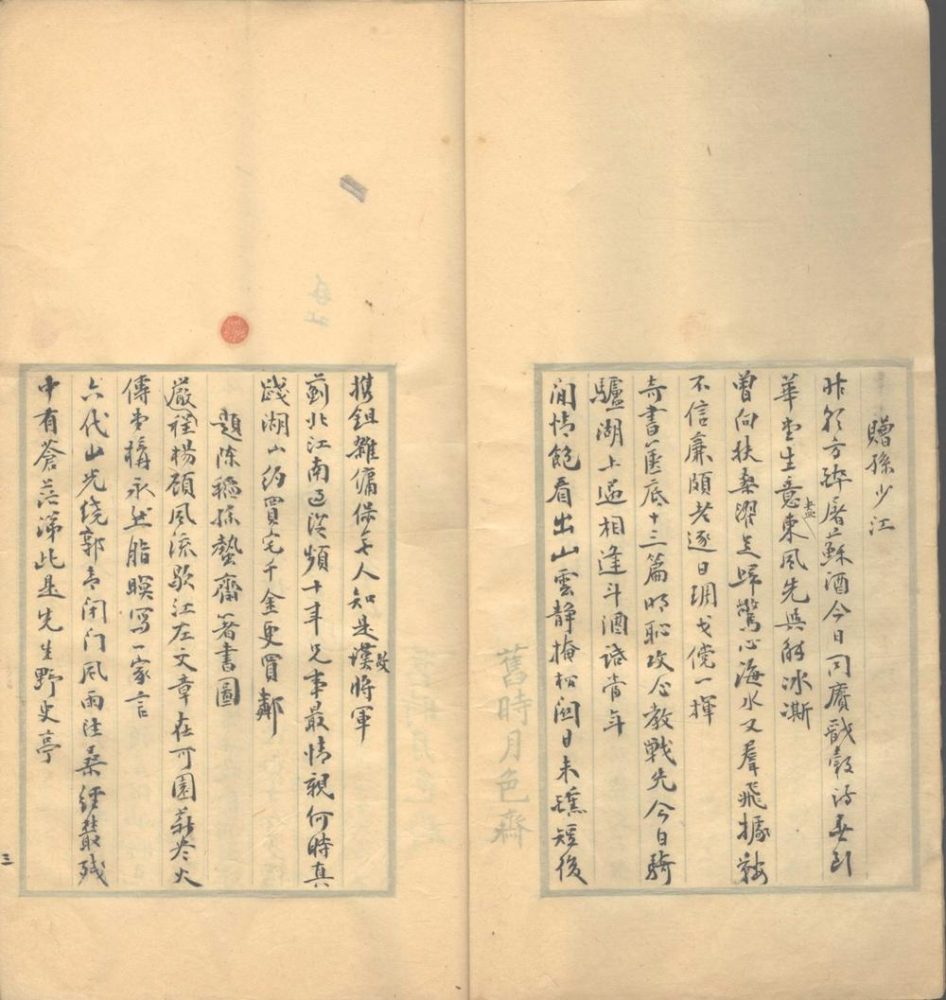 贈孫少江
昨祭方醉屠蘇酒今日同賡戩穀詩
華堂生意盎東風先與解冰澌
曾向扶桑濯足歸驚心海水又羣飛據鞍
不信廉頗老逐日琱戈儻一揮
奇書匧底十三篇明恥攻心教戰先今日騎
驢湖上過相逢斗酒話當年
閒情飽看出山雲靜掩松關日未曛短後
舊時月色齋
攜鉏雜傭保無人知是漢故將軍
薊北江南過從頻十年兄事最情親何時真
踐湖山約買宅千金更買鄰
題陳稻孫蟄齋箸書圖
嚴程楊顧風流歇江左文章在可園薪盡火
傳堂構永然脂暝寫一家言
六代山光繞郭青閉门風雨注桑經叢殘
中有蒼茫涕此是先生野史亭
三